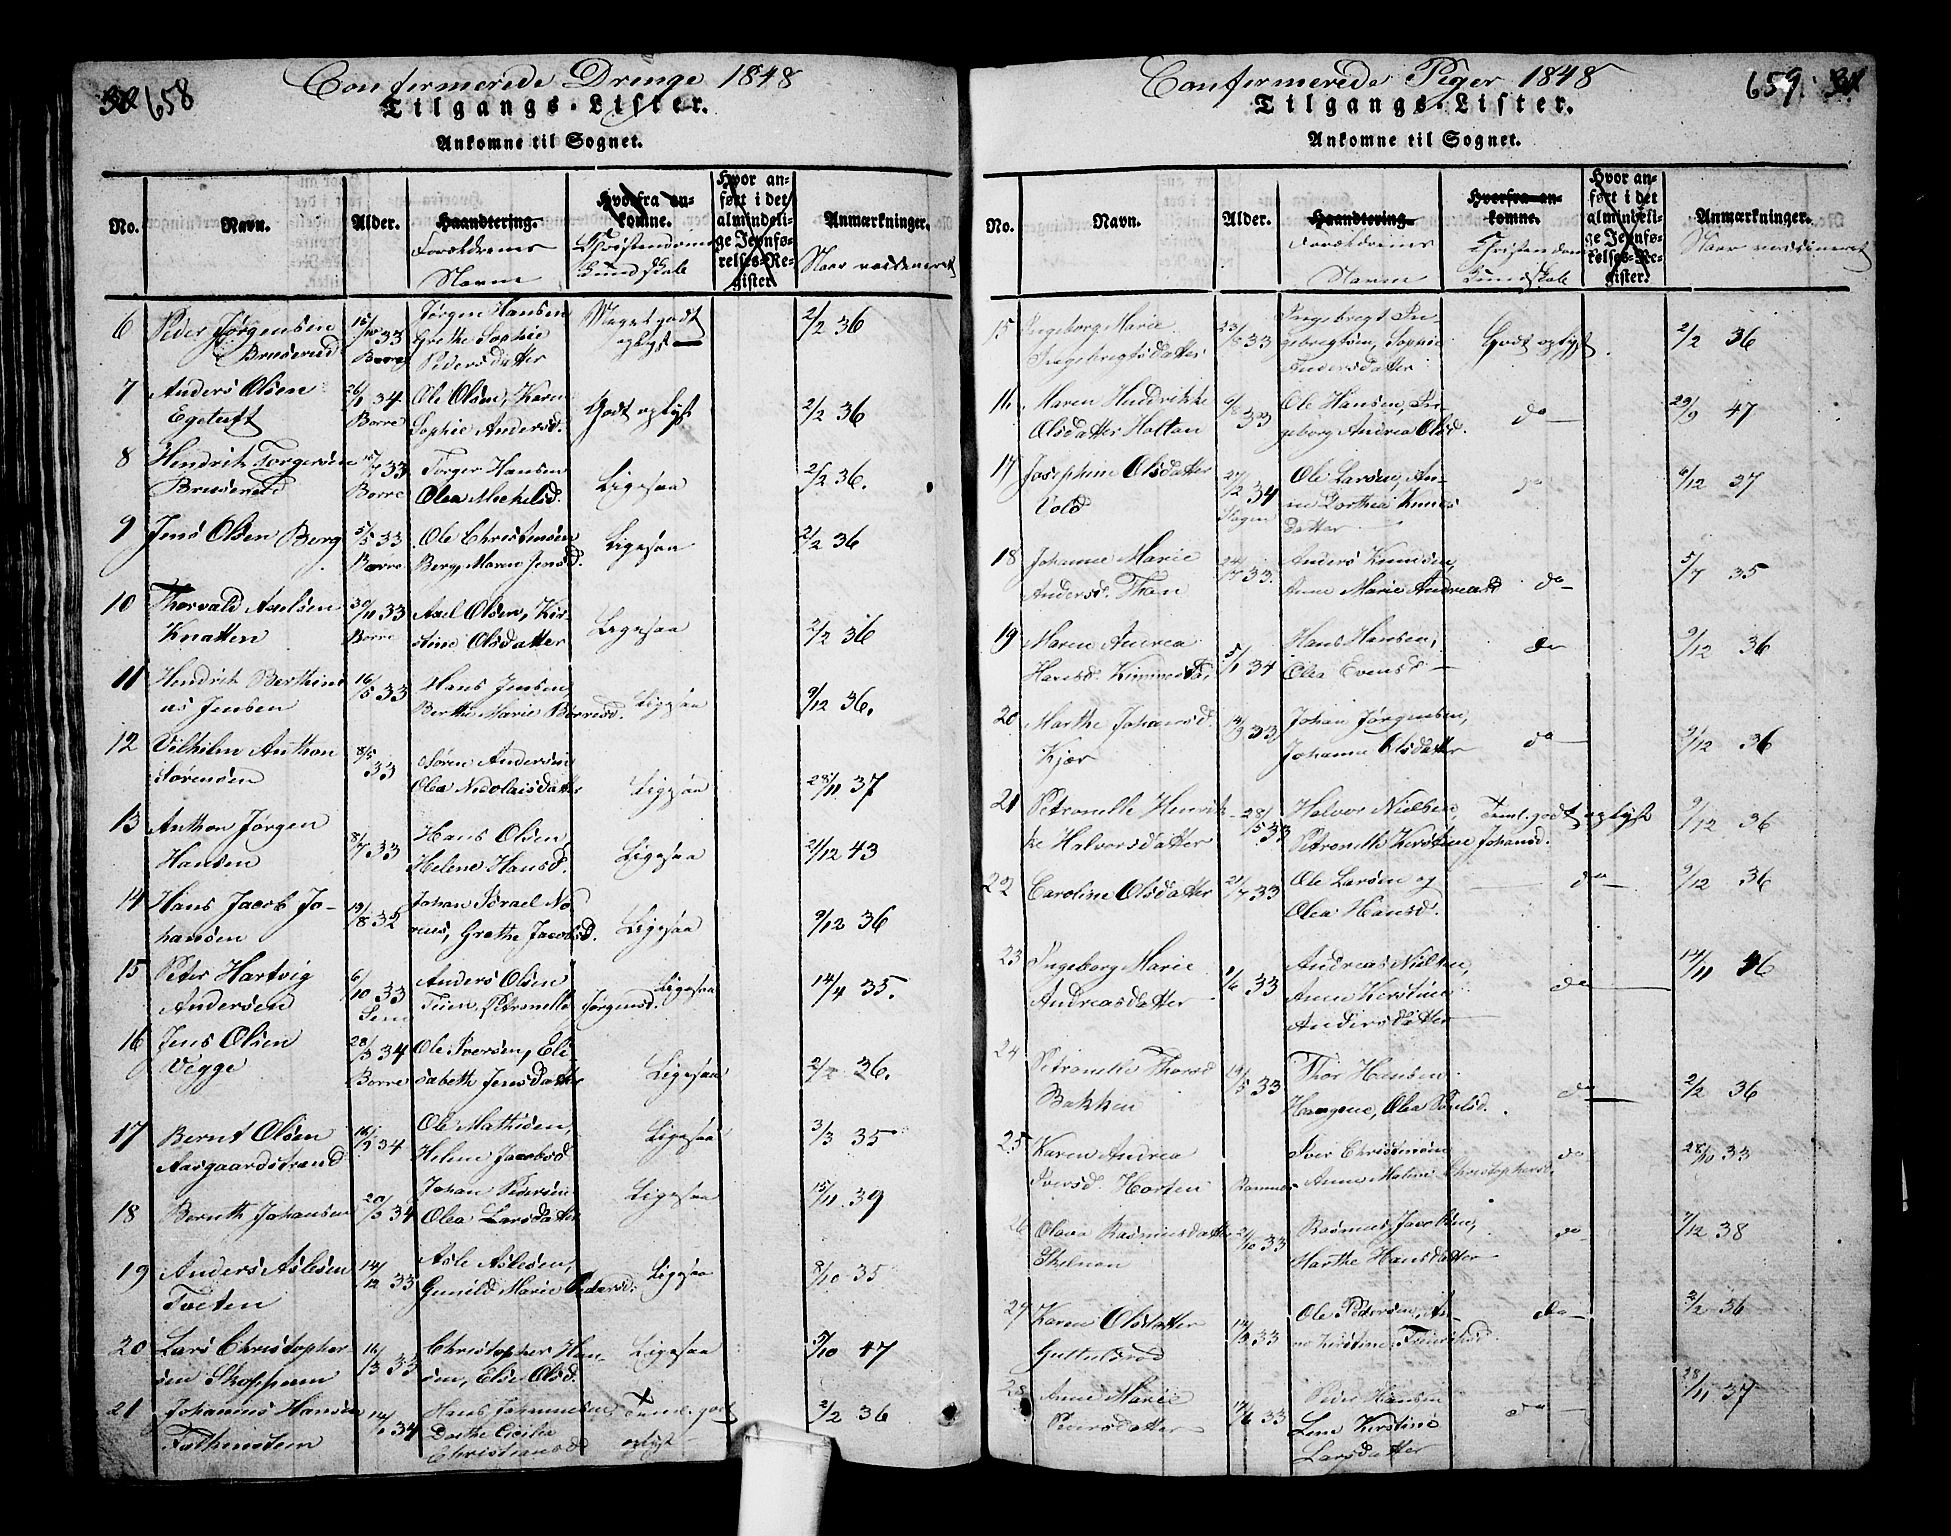 658
Confirmerede Drenge 1848
Tilgangs-Lister.
Ankomne til Sognet.
No. Navn. Alder. Haandtering. Hvorfra ankomne. Hvor anført i det almindelige Jevnførelses-Register Anmærkninger.
Forældrenes Navne Christendoms Kundskab Naar vaccineret
6 Peder Jørgensen Bruserud 15/10 33 Borre Jørgen Hansen Grethe Sophie Pedersdatter Meget godt oplyst 2/2 36
7 Anders Olsen Egetuft 26/1 34 Borre Ole Olsen, Karen Sophie Andersd. Godt oplyst 2/2 36
8 Hendrik Torgersen Bruserud 33 Borre Torger Hansen Olea Michelsd. Ligesaa 2/2 36.
9 Jens Olsen Berg 5/5 33 Borre Ole Christensen Berg, Maren Jensd. Ligesaa 2/2 36
10 Thorvald Axelsen Knatten 30/11 33 Borre Axel Olsen, Kirstine Olsdatter Ligesaa 2/2 36
11 Hendrik Berthinius Jensen 16/5 33 Hans Jensen, Berthe Marie Børresd. Ligesaa 9/12 36.
12 Vilhelm Anthon Sørensen 8/5 33 Søren Andersen Olea Nicolaisdatter Ligesaa 28/11 37
13 Anthon Jørgen Hansen 8/7 33 Hans Olsen, Helene Hansd. Ligesaa 21/12 43
14 Hans Jacob Johansen 19/8 32 Johan Israel Norenus, Grethe Jacobsd. Ligesaa 9/12 36
15 Peter Hartvig Andersen 6/10 33 Sem Anders Olsen Teien, Petronelle Jørgensd. Ligesaa 14/4 35.
16 Jens Olsen Vegge 28/3 34 Borre Ole Iversen, Elisabeth Jensdatter Ligesaa 2/2 36.
17 Bernt Olsen Aasgaardstrand 34 Ole Mathisen, Helene Jacobsd Ligesaa 3/3 35
18 Bernth Johansen 20/3 34 Johan Pedersen Olea Larsdatter Ligesaa 15/11 39
19 Anders Aslesen Tveten 14/12 33 Asle Aslesen, Gunild Marie Pedersd. Ligesaa 8/10 35
20 Lars Christophersen Skoppum 16/3 33 Christopher Hansen, Else Olsd. Ligesaa 5/10 47
21 Johannes Hansen 14/1 34 Hans Dorthe Cicilie Christiansd Teml. godt oplyst 2/2 36
659.
Confermerede Piger 1848
Tilgangs-Lister.
Ankomne til Sognet.
No. Navn. Alder. Haandtering. Hvorfra ankomne. Hvor anført i det almindelige Jevnførelses-Register. Anmærkninger.
Forældrenes Navne Christendoms Kundskab Naar vaccineret
15 Ingeborg Marie Ingebregtsdatter 23/8 33 Ingebregt Ingebregtsen, Sophie Andersdatter Godt oplyst 2/2 36
16 Maren Hendrikke Olsdatter Holtan 9/8 33 Ole Hansen, Ingeborg Andrea Olsd. do 29/9 47
17 Josephine Olsdatter Vold 27/2 34 Slagen Ole Larsen, Anne Dorthea datter do 6/12 37
18 Johanne Marie Andersd. Than 24/7 33. Anders Knudsen, Anne Marie Andreasd do 5/7 35
19 Maren Andrea Hansd. 5/1 34 Hans Hansen, Olea Evensd do 9/12 36
20 Marthe Johansd. Kjær 33 Johan Jørgensen, Johanne Olsdatter do 9/12 36
21 Petronelle Henrikke Halvorsdatter 28/5 33 Halvor Nielsen, Petronelle Kerstine Johansd. Teml. godt oplyst 9/12 36
22 Caroline Olsdatter 21/7 33 Ole Larsen og Olea Hansd. do 9/12 36
23 Ingeborg Marie Andreasdatter 1/6 33 Andreas Nielsen, Anne Kerstine Andersdatter do 14/11
24 Petronelle Thorsd Bakken 19/5 33 Thor Hansen Haugene, Olea Poulsd. do 2/2 36
25 Karen Andrea Iversd. Horten Ramnes Iver Christensen Anne Malene Christophersd. do 28/10 33
26 Olava Rasmusdatter 21/10 33 Rasmus Jacobsen, Marthe Hansdatter do 7/12 38
27 Karen Olsdatter Guttulsrød 33 Ole Pedersen, do 2/2 36
28 Anne Marie Pedersdatter 17/6 33 Peder Hansen Lene Kerstine Larsdatter do 28/11 37